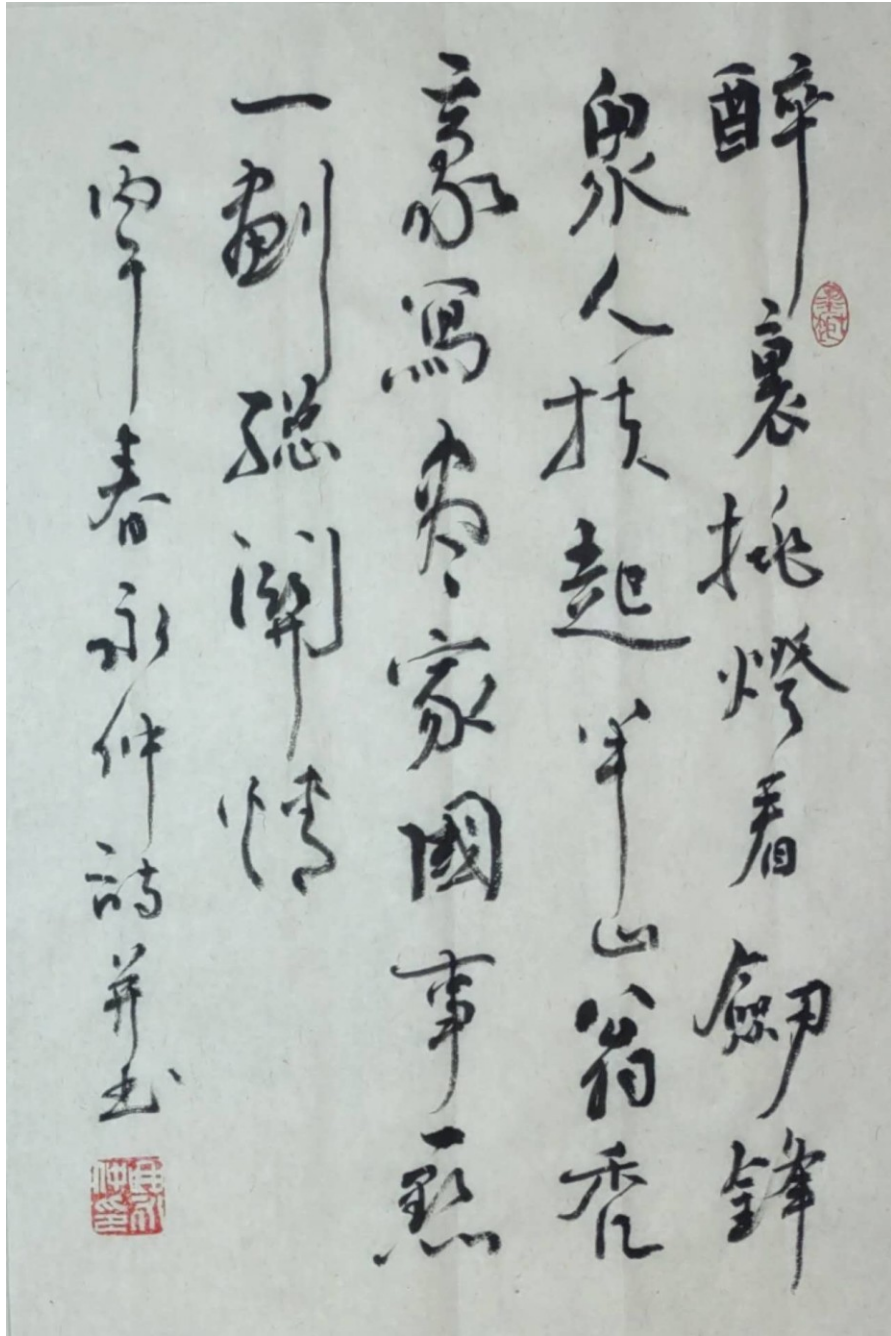 醉裏挑燈看劔鋒
衆人扶起半山翁禿
豪寫盡家國事點
一劃總關情
丙午春永仲詩并書